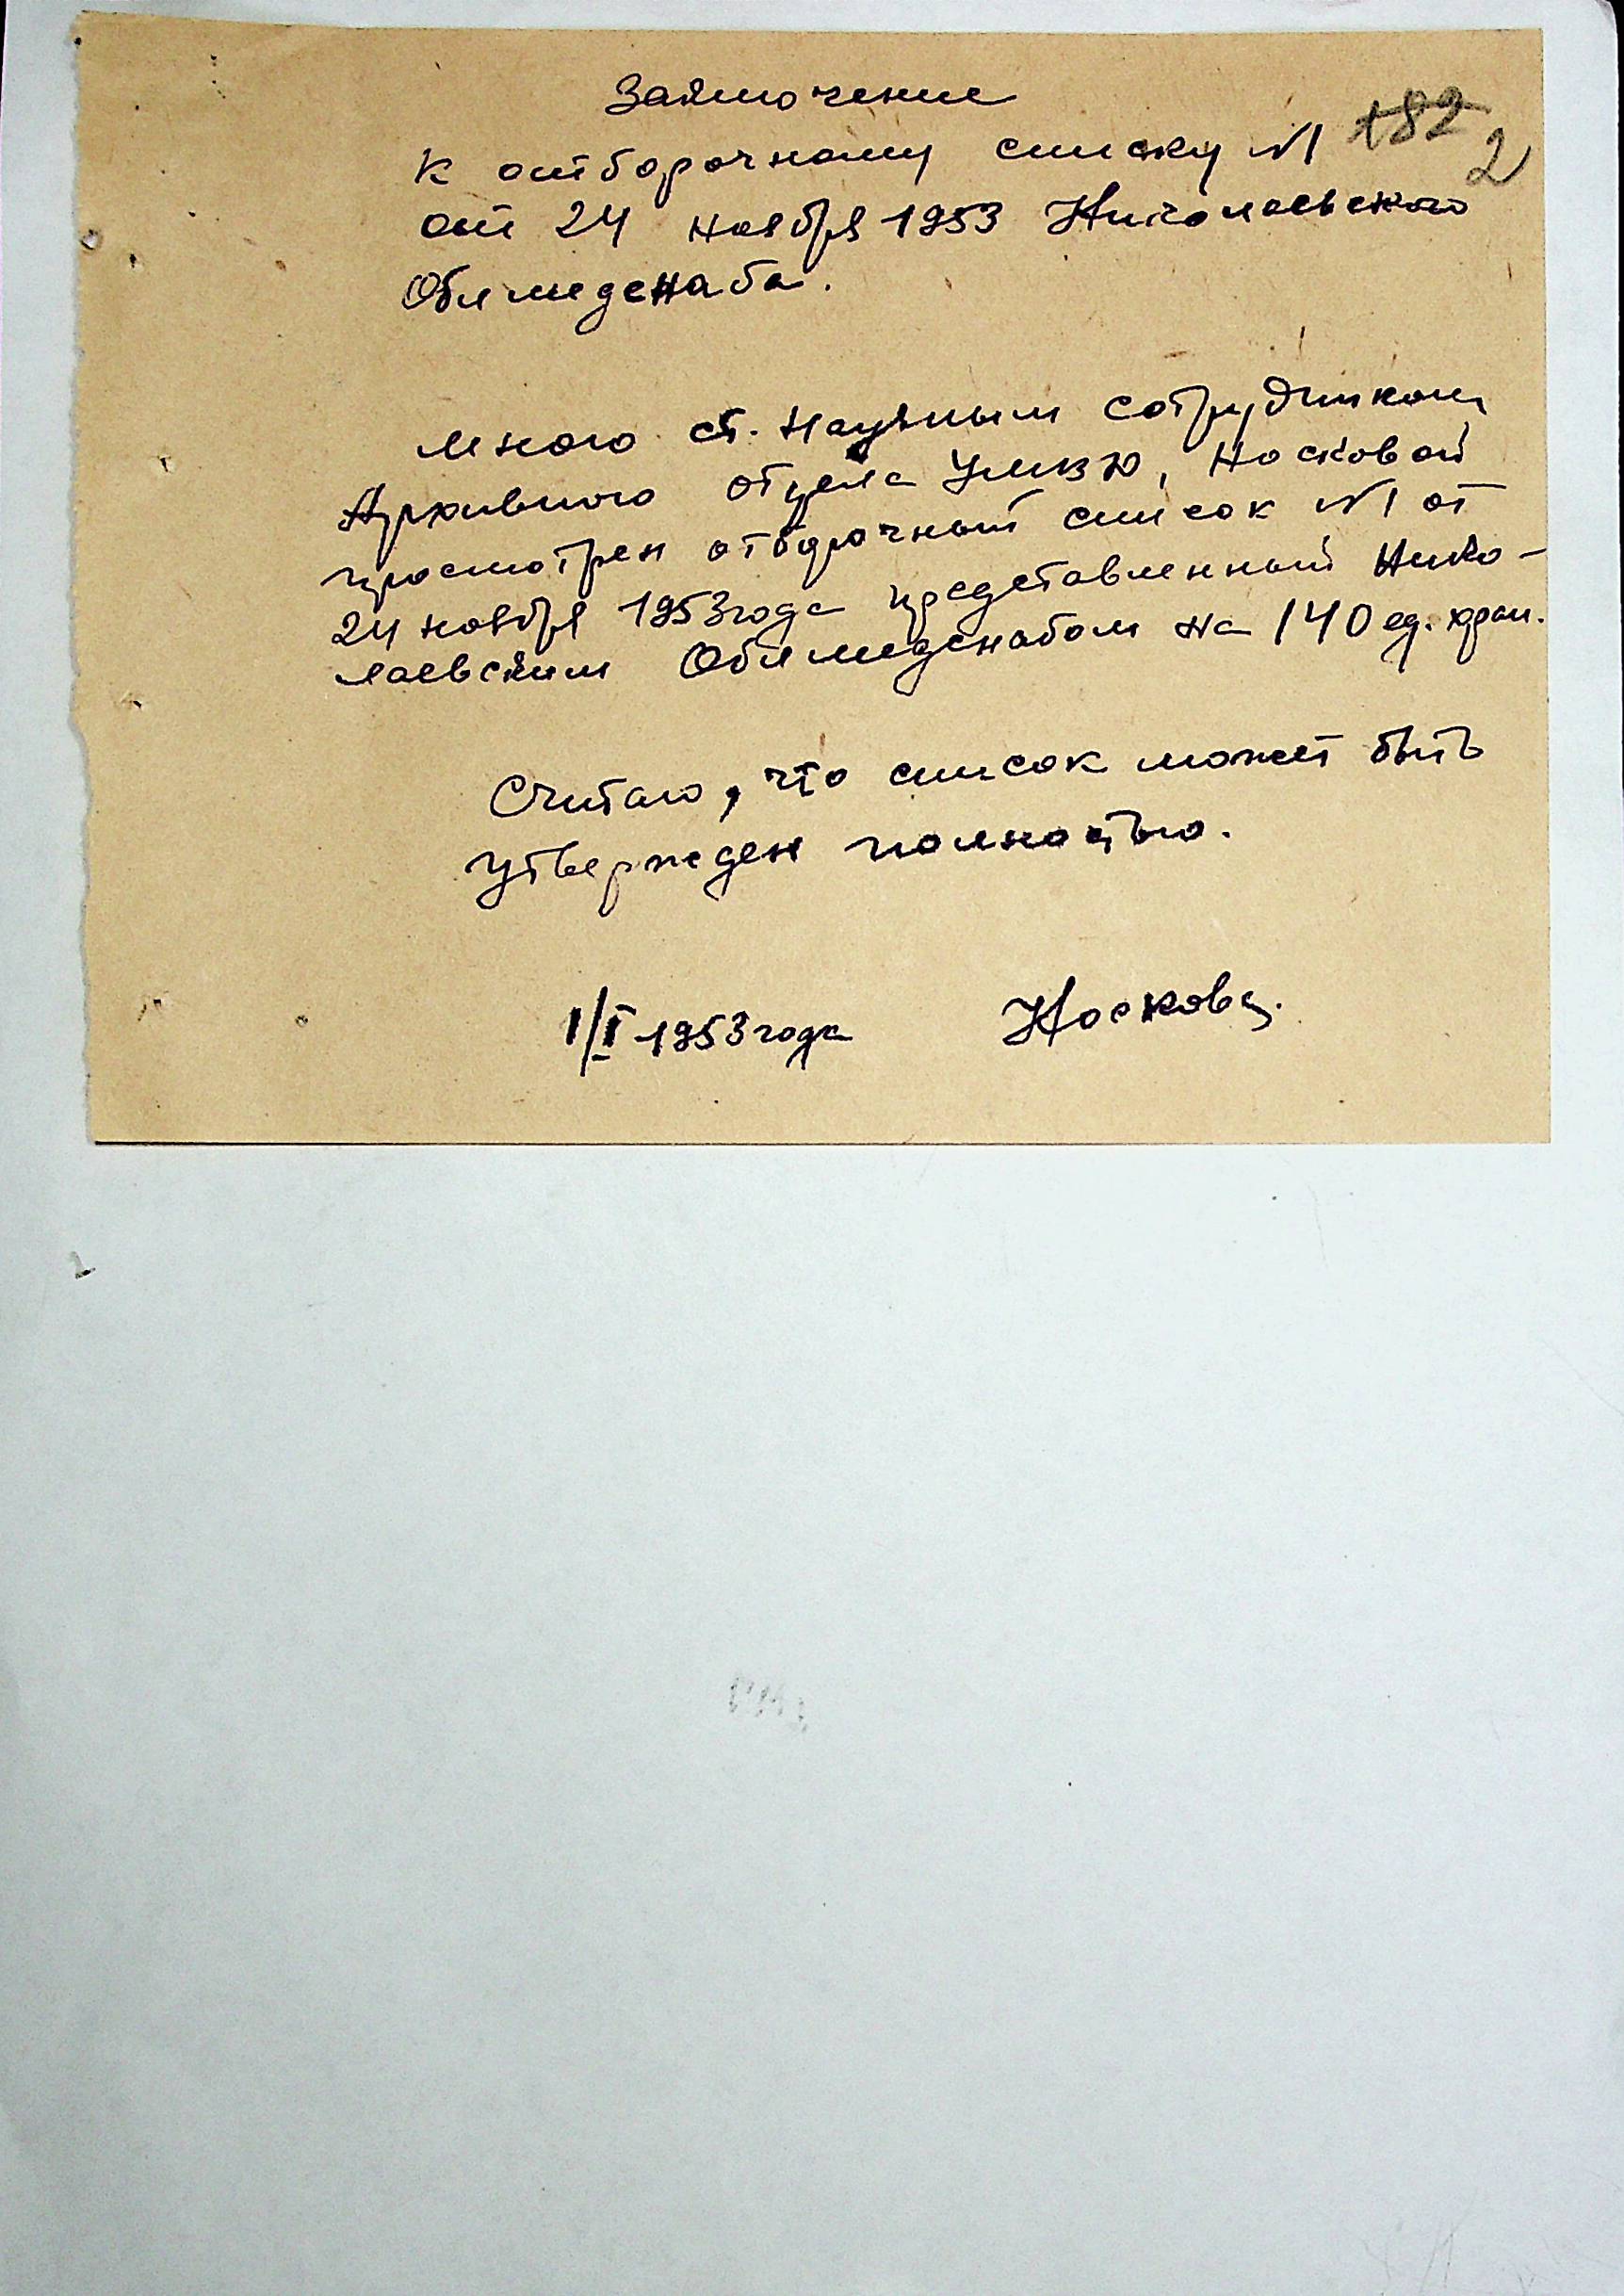 Заключение
к отборочному списку №1 182 2
от 24 ноября 1953 Николаевского
Облмедснаба.
Мною ст. научным сотрудником
Архивного отдела УМВД, Носковой
просмотрен отборочный список №1 от
24 ноября 1953 года представленный Нико-
лаевским Облмедснабом на 140 ед. хран.
Считаю, что список может быть
утвержден полностью.
1/I 1953 года Носкова.